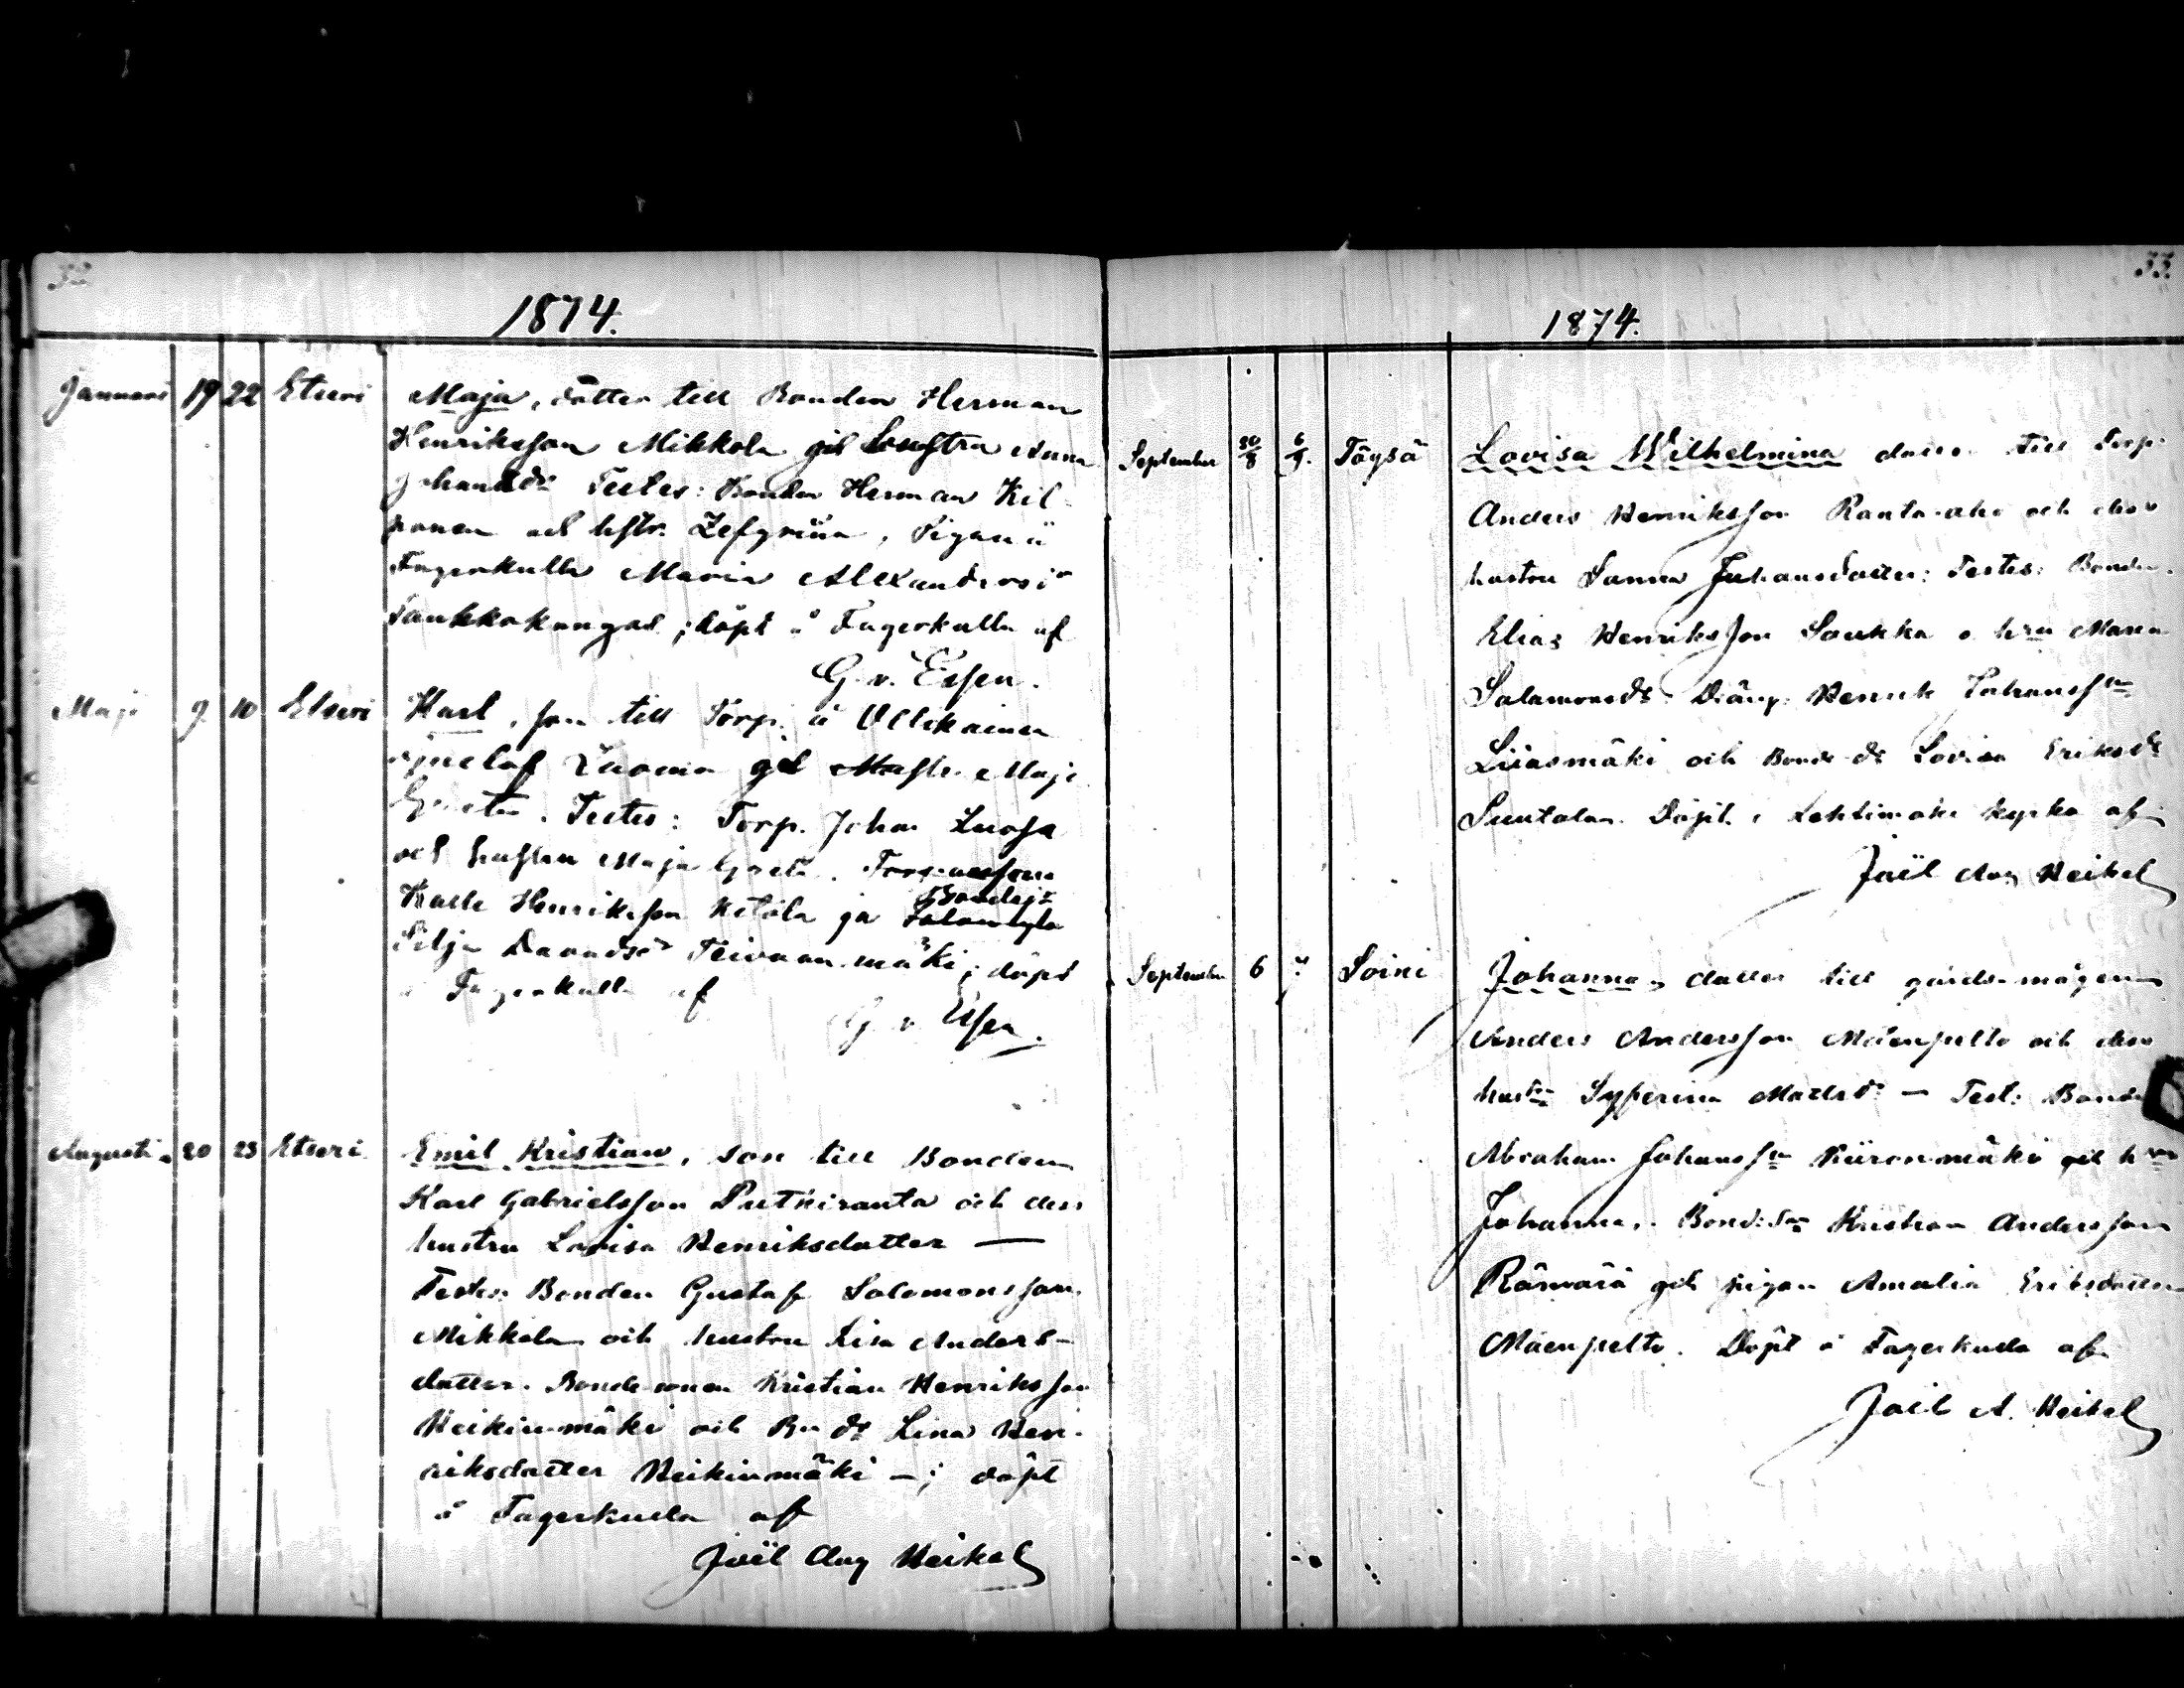 32
1874.
Januari 19 22 Etseri Maja, dotter till Bonden Herman
Henriksson Mikkola och hustru Anna
Johansdr Testes: Bonden Herman Kil-
ponen och hstr. Zefyriina, Pigan å
Fagerkulla Maria Alexandersdr
Saukkokangas; döpt å Fagerkulla af
G. v. Essen.
Maji 9 10 Etseri Karl, son till Torp. å Ullikainen
och Maja
Greta. Testes: Torp. Johan Luoja
och hustru Maja Greta.
Kalle Henriksson Ketola ja Bondedr
Silja Davidsdr mäki; döpt
å Fagerkulla af
G. v. Essen.
Augusti 20 23 Etseri Emil Kristian, son till Bonden
Karl Gabrielsson Putkiranta och dess
hustru Lovisa Henriksdotter —
Testes: Bonden Gustaf Salomonsson
Mikkola och hustru Lisa Anders-
dotter. Bondesonen Kristian Henriksson
Heikinmäki och Bndr Lina Hen-
riksdotter Heikinmäki —; döpt
å Fagerkulla af
Joël Aug Heikel
33.
1874.
September 30/8 6/9. Töysä Lovisa Wilhelmina dotter till Torp.
Anders Henriksson Ranta-aho och dess
hustru Sanna Johansdotter: Testes: Bonden
Elias Henriksson Soukka o. hru Maria
Salamonsdr Dräng. Henrik Johansson
Liiasmäki och Bonde dr Lovisa Eriksdr
Suutala. Döpt i Lehtimäki kyrka af
Joël Aug Heikel
September 6 7 Soini Johanna, dotter till gårdsmågen
Anders Andersson Mäenpelto och dess
hustru Syferina Mattsdr — Test: Bonden
Abraham Johansson Kiironmäki och hru
Johanna. Bond: son Kristian Andersson
och pigan Amalia Eriksdotter
Mäenpelto. Döpt å Fagerkulla af
Joël A. Heikel